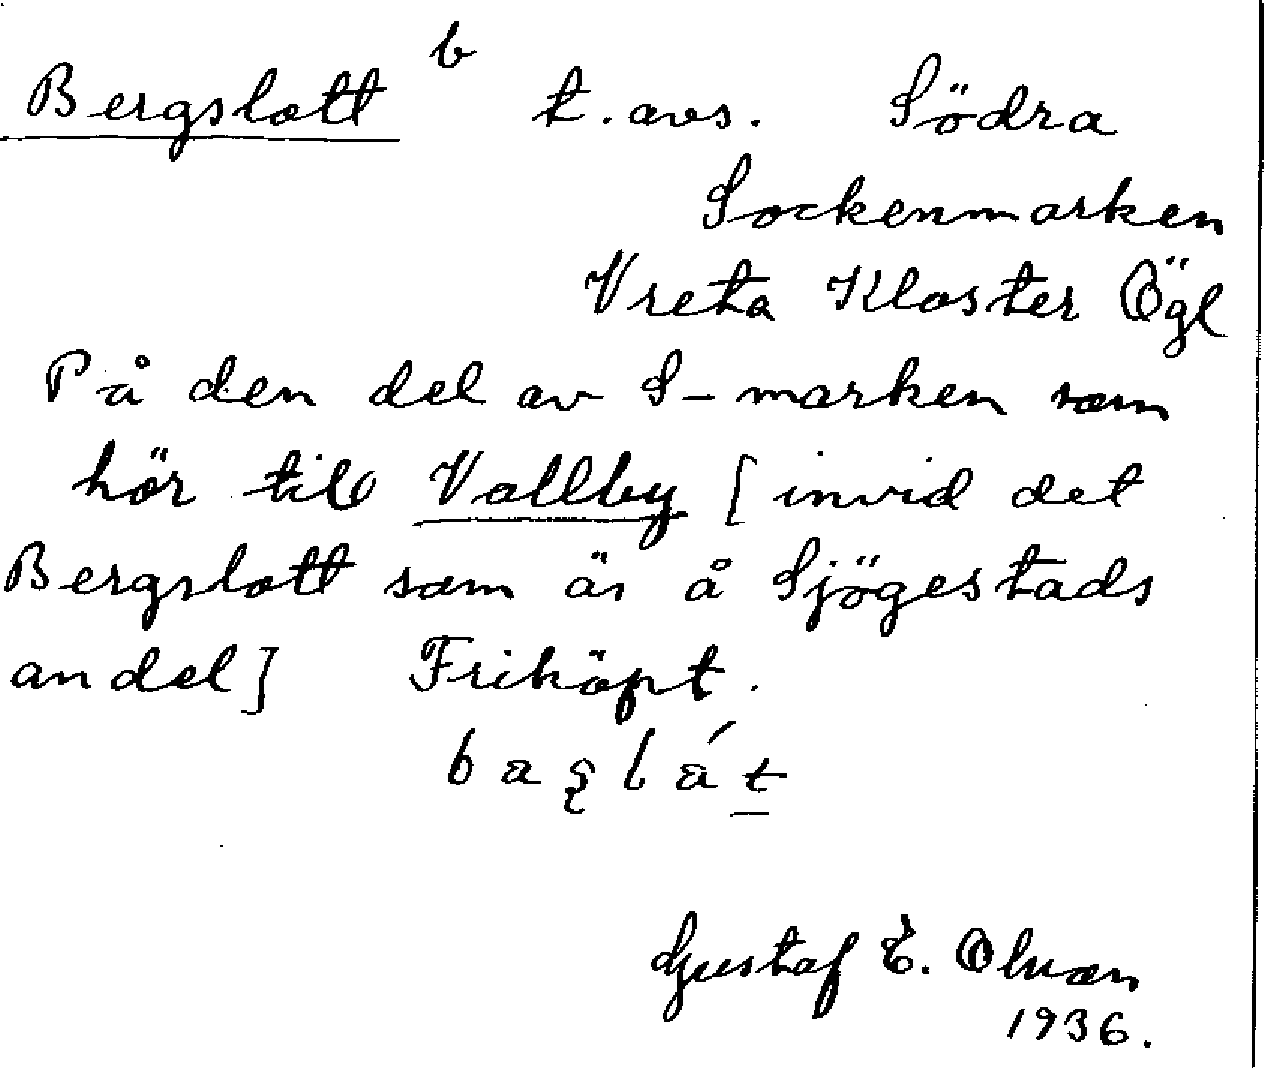 Bergslott b t. avs. Södra
Sockenmarken
Vreta Kloster Ögl
På den del av S-marken som
hör till Vallby [invid det
Bergslott som är å Sjögestads
andel] Friköpt.
Gustaf E. Olson
1936.